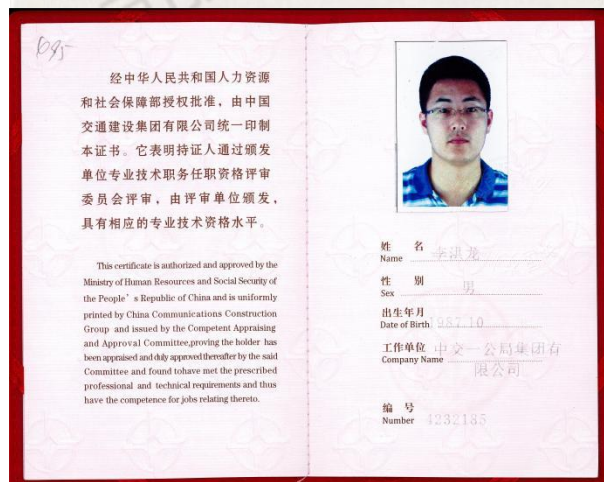 695
经中华人民共和国人力资源
和社会保障部授权批准，由中国
交通建设集团有限公司统一印制
本证书。它表明持证人通过颁发
单位专业技术职务任职资格评审
委员会评审，由评审单位颁发，
具有相应的专业技术资格水平。
This certificate is authorized and approved by the
Ministry of Human Resources and Social Security of
the People's Republic of China and is uniformly
printed by China Communications Construction
Group and issued by the Competent Appraising
and Approval Committee,proving the holder has
been appraised and duly approved thereafter by the said
Committee and found tohave met the prescribed
professional and technical requirements and thus
have the competence for jobs relating thereto.
姓 名 李洪龙
Name
性 别 男
Sex
出生年月
Date of Birth 1987.10
工作单位 中交一公局集团有
Company Name 限公司
编 号
Number 4232185